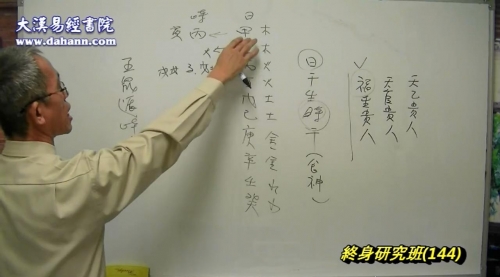 大漢易經書院
www.dahann.com
天乙貴人
天官貴人
福星貴人
日干生時干(食神)
木木火火土土金金水水
日甲
戊己庚辛壬癸
時
寅丙
五鼠遁時
終身研究班(144)